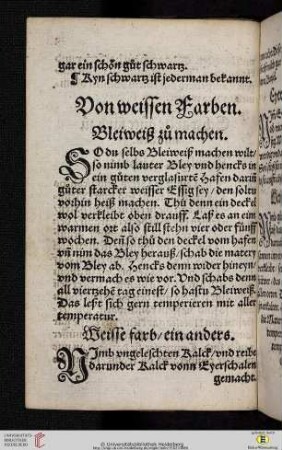 gar ein schön gůt schwartz.
¶ Kyn schwartz ist jederman bekannt.
Von weissen Farben.
Bleiweiß zů machen.
SO du selbs Bleiweiß machen wilt/
so nimb lauter Bley vnd hencks in
ein gůten verglasurtē Hafen dariñ
gůter starcker weisser Essig sey / den soltu
vorhin heiß machen. Thů denn ein deckel
wol verkleibt oben drauff. Laß es an eim
warmen ort also still stehn vier oder fünff
wochen. Deñ so thů den deckel vom hafen
vñ nim das Bley herauß/ schab die matery
vom Bley ab. Hencks denn wider hineyn/
vnd vermach es wie vor. Vnd schabs denn
all viertzehē tag einest/ so hastu Bleiweiß.
Das leßt sich gern temperieren mit aller
temperatur.
Weisse farb/ ein anders.
NImb vngeleschten Kalck/ vnd reibe
darunder Kalck vonn Eyerschalen
gemacht.
UNIVERSITÄTS-
BIBLIOTHEK
HEIDELBERG
© Universitätsbibliothek Heidelberg